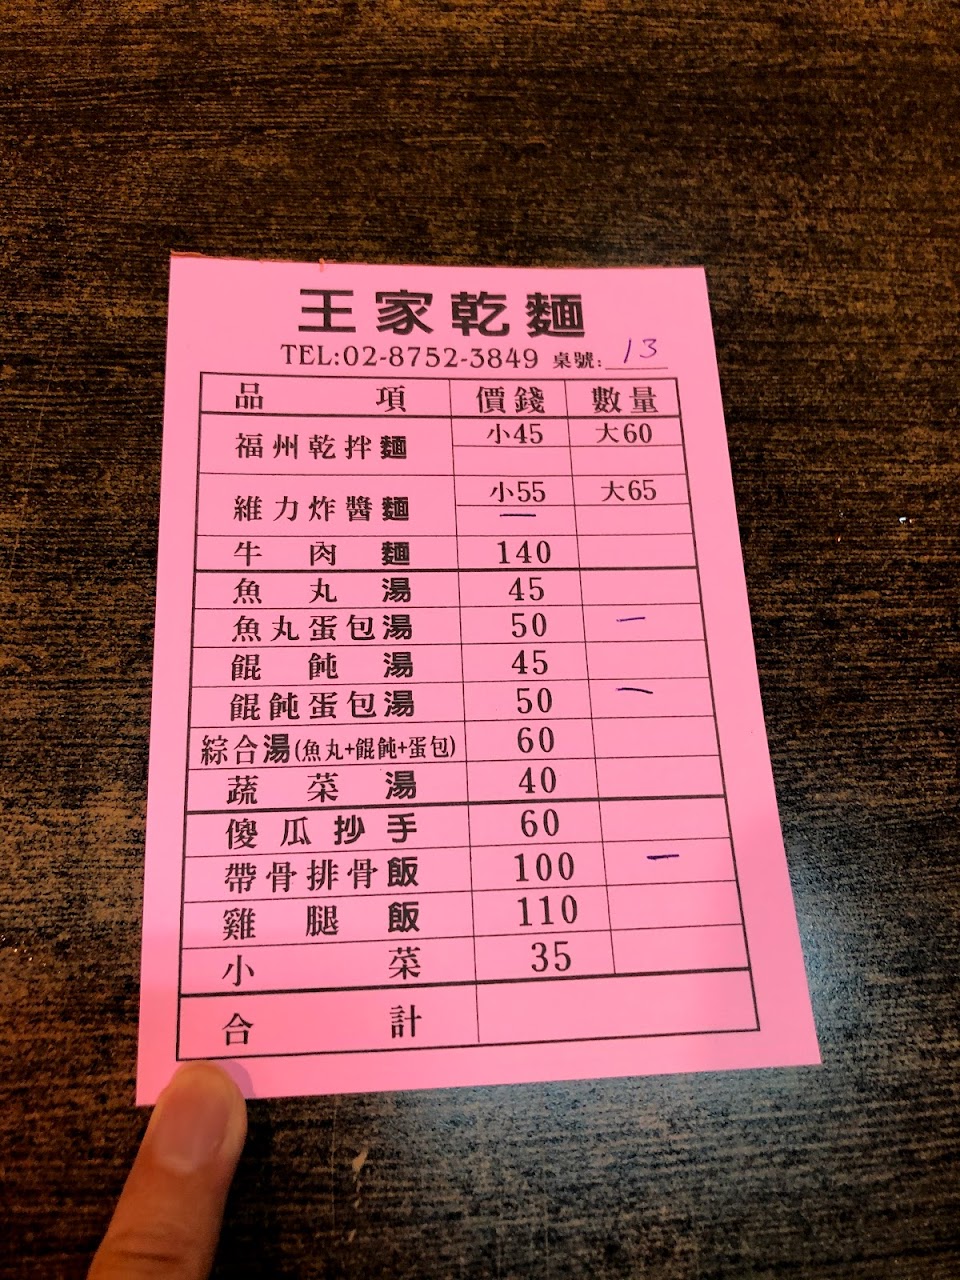 王家乾麵
TEL:02-8752-3849 桌號: 13
品項 價錢 數量
福州乾拌麵 小45 大60
維力炸醬麵 小55 大65
一
牛肉麵 140
魚丸湯 45
魚丸蛋包湯 50 一
餛飩湯 45
餛飩蛋包湯 50 一
綜合湯(魚丸+餛飩+蛋包) 60
蔬菜湯 40
傻瓜抄手 60
帶骨排骨飯 100 一
雞腿飯 110
小菜 35
合計